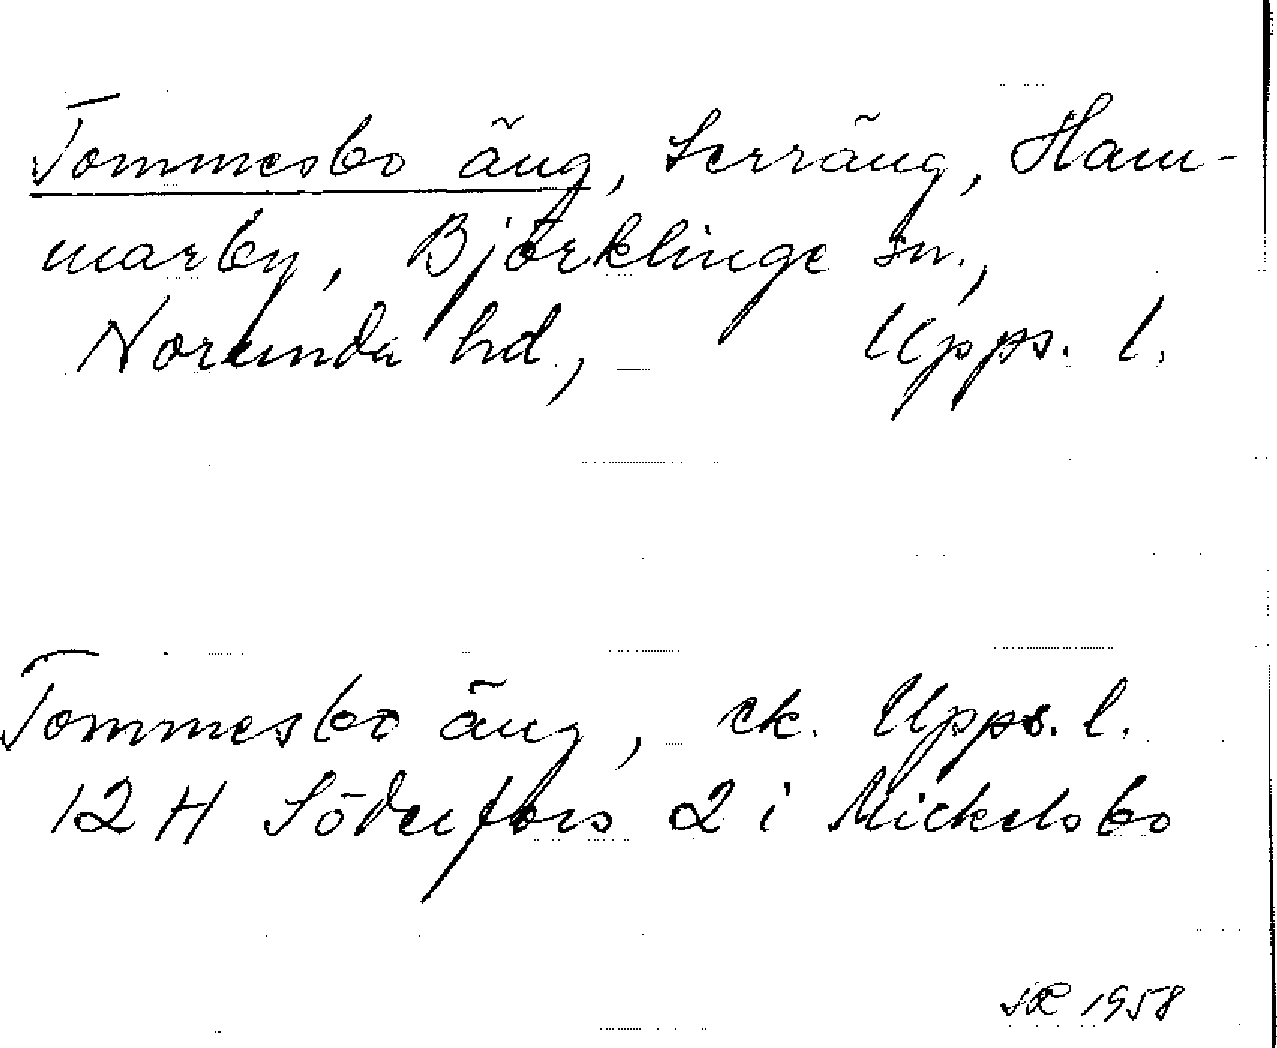 Tommesbo äng, terräng, Ham-
marby, Björklinge sn.,
Norunda hd., Upps. l.
Tommesbo äng, ek. Upps. l.
12 H Söderfors 2 i Mickelsbo
1958